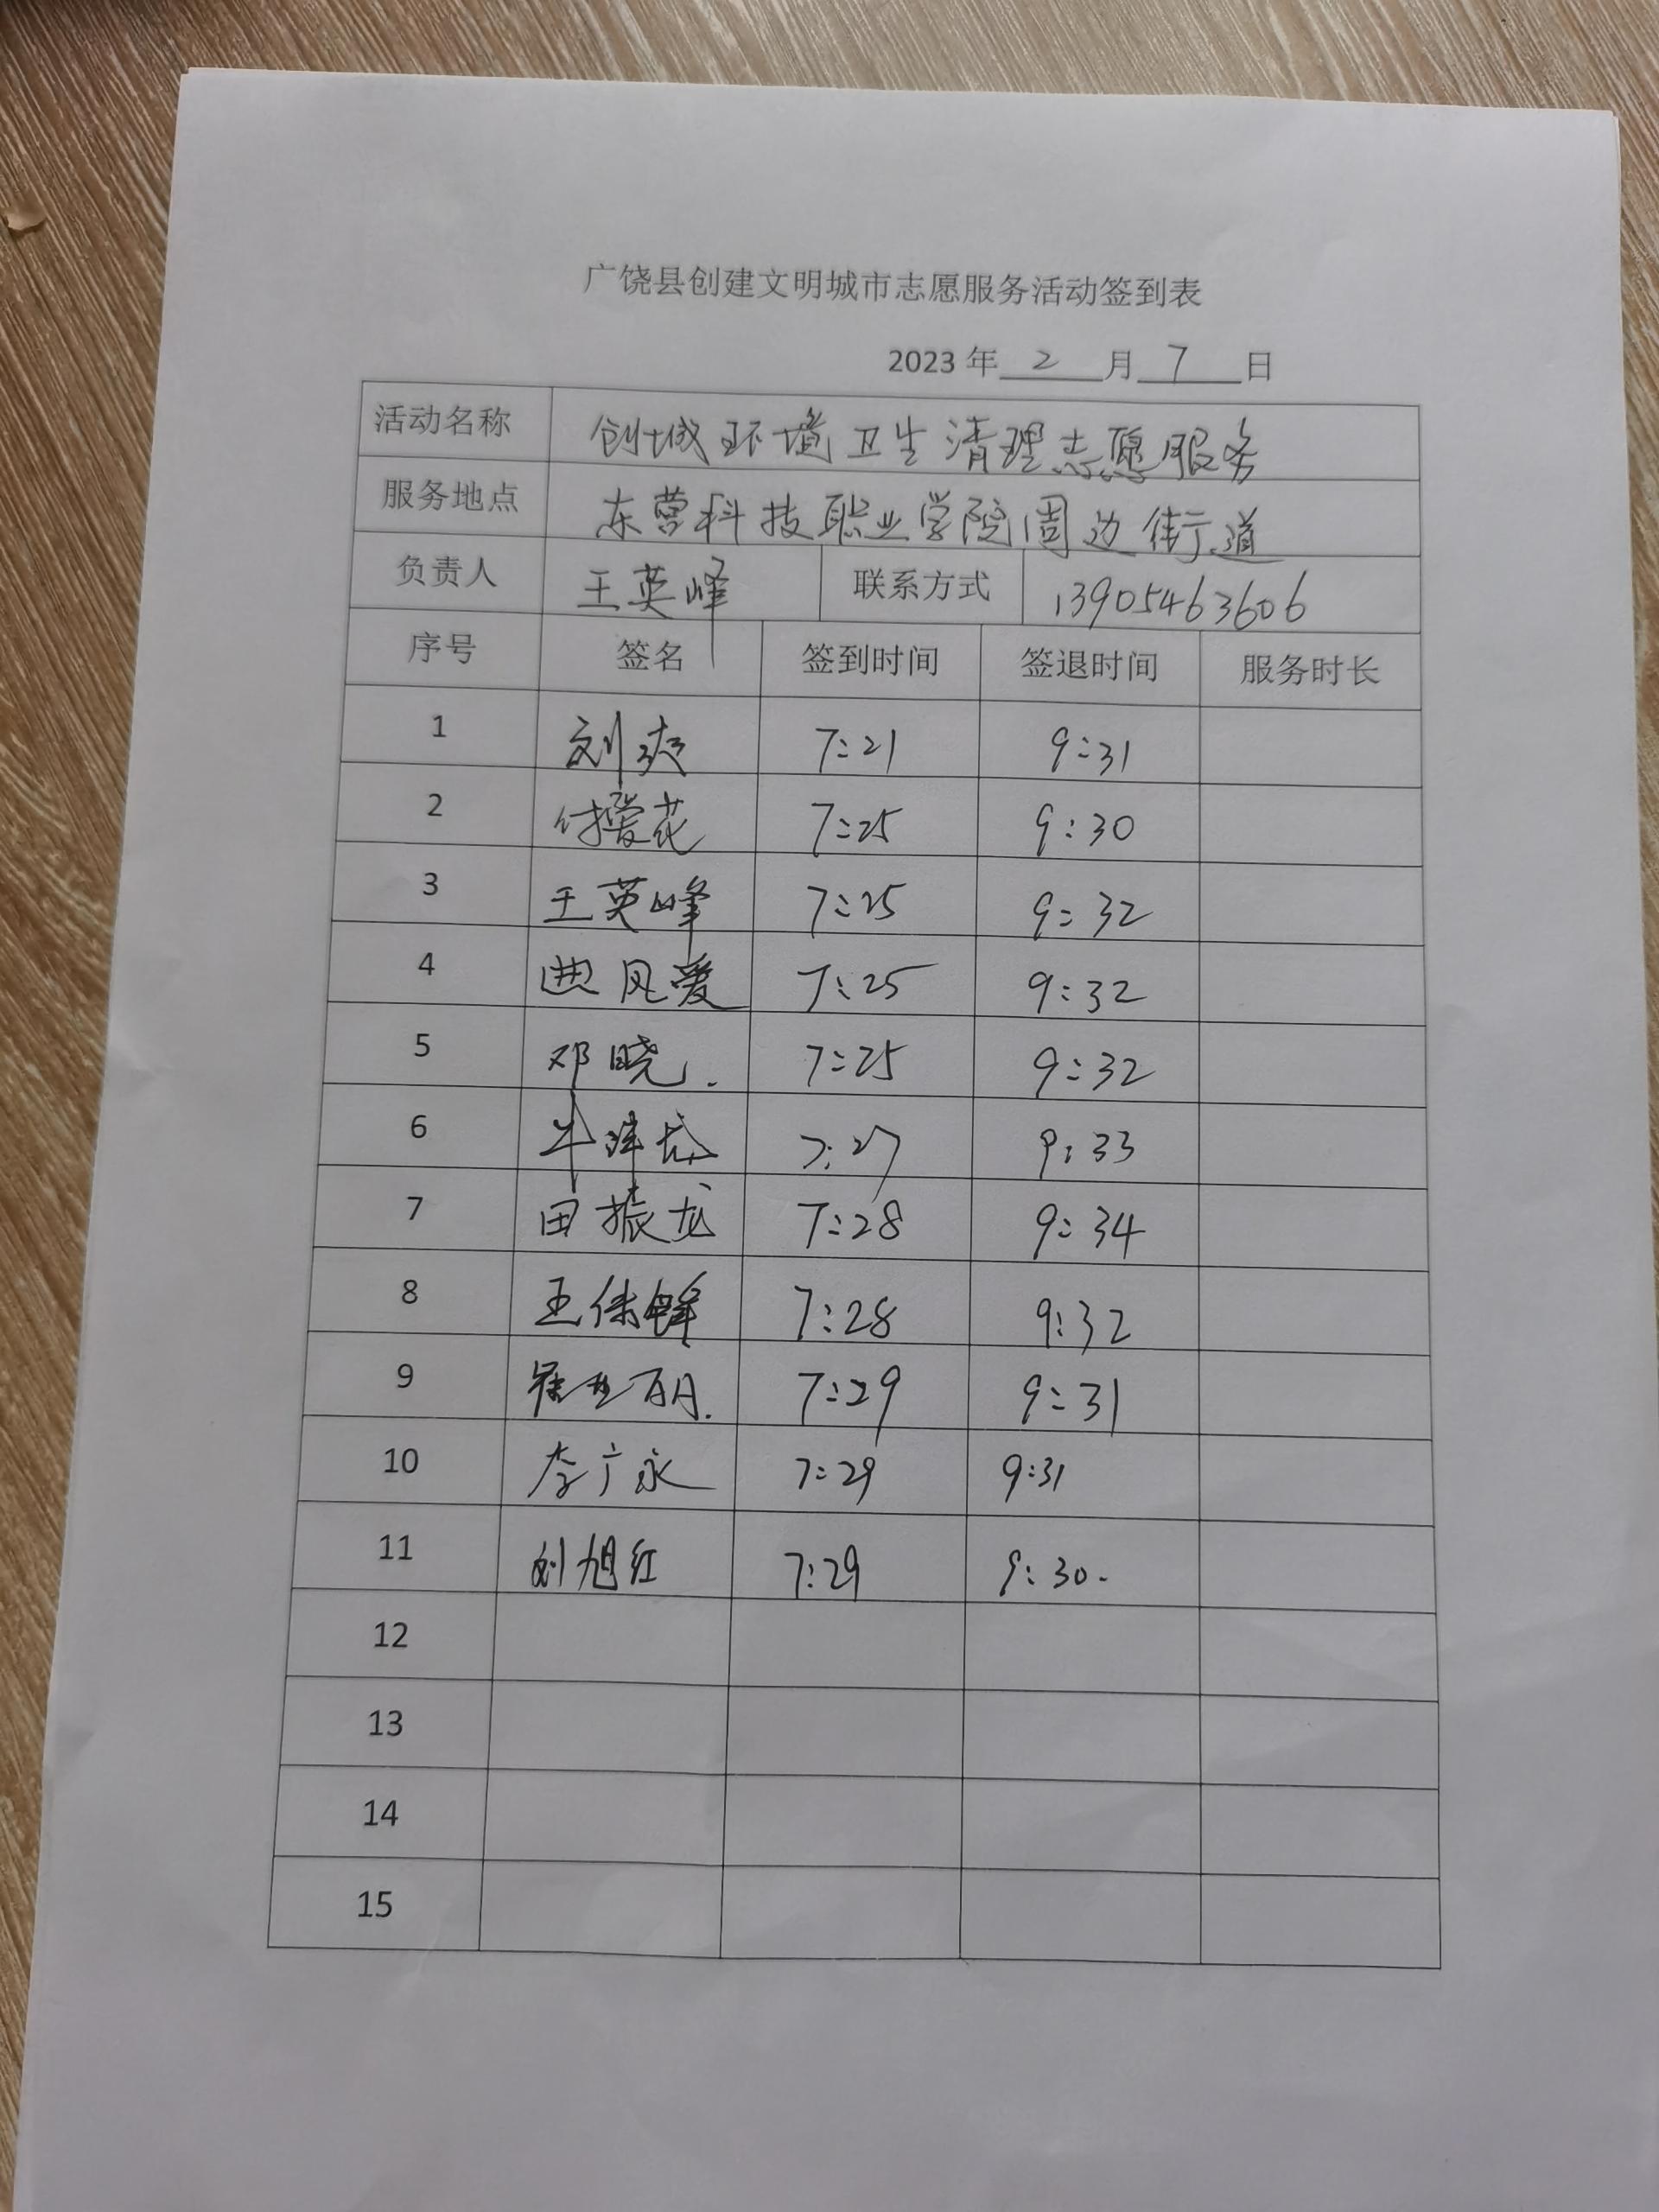 广饶县创建文明城市志愿服务活动签到表
2023 年 2 月 7 日
活动名称 创城环境卫生清理志愿服务
服务地点 东营科技职业学院周边街道
负责人 王英峰 联系方式 13905463606
序号 签名 签到时间 签退时间 服务时长
1 刘爽 7:21 9:31
2 付爱花 7:25 9:30
3 王英峰 7:25 9:32
4 风爱 7:25 9:32
5 邓晓. 7:25 9:32
6 7:27 9:33
7 田振龙 7:28 9:34
8 王 7:28 9:32
9 7:29 9:31
10 李广永 7:29 9:31
11 刘旭红 7:29 9:30.
12
13
14
15